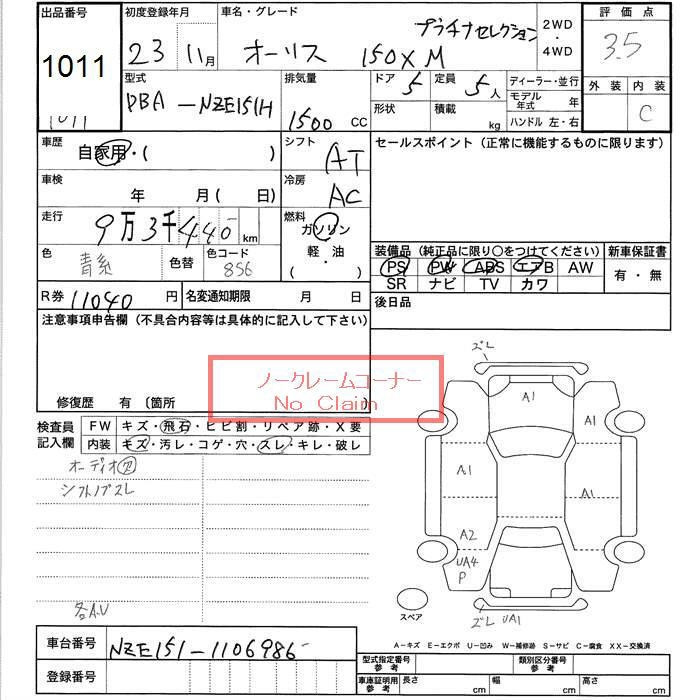 出品番号
1011
1011
初度登録年月
23 11月
車名・グレード
プラチナセレクション
オーリス 150X M
2WD
・
4WD
評価点
3.5
外装 内装
C
型式
DBA-NZE151H
排気量
1500 CC
ドア 5
定員 5人
形状
積載 kg
ディーラー・並行
モデル年式 年
ハンドル 左・右
車歴
自家用・( )
シフト
AT
セールスポイント(正常に機能するものに限ります)
車検
年 月( 日)
冷房
AC
走行
9万3千440 km
燃料
ガソリン
軽・油
( ・ )
色
青系
色替
色コード
856
装備品(純正品に限り〇をつけてください)
新車保証書
PS PW ABS エアB AW
SR ナビ TV カワ
有・無
R券 11040 円
名変通知期限 月 日
後日品
注意事項申告欄(不具合内容等は具体的に記入して下さい)
ノークレームコーナー
No Claim
修復歴 有 〔箇所
検査員記入欄
FW キズ・飛石・ヒビ割・リペア跡・X要
内装 キズ・汚レ・コゲ・穴・スレ・キレ・破レ
オーディオア
シフトノブスレ
各A.U
ズレ
A1
A1
A1
A1
A2
UA4
P
ズレ UA1
スペア
A-キズ E-エクボ U-凹み W-補修跡 S-サビ C-腐食 XX-交換済
車台番号 NZE151-1106986
登録番号
型式指定番号 参考
類別区分番号 参考
車庫証明用 参考
長さ cm
幅 cm
高さ cm